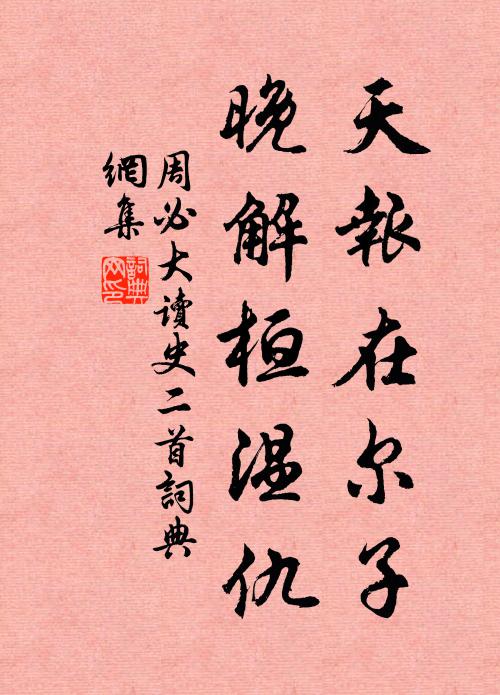 天報在尔子
晚解桓温仇
周必大读史二首詞典
網集
詞典網印